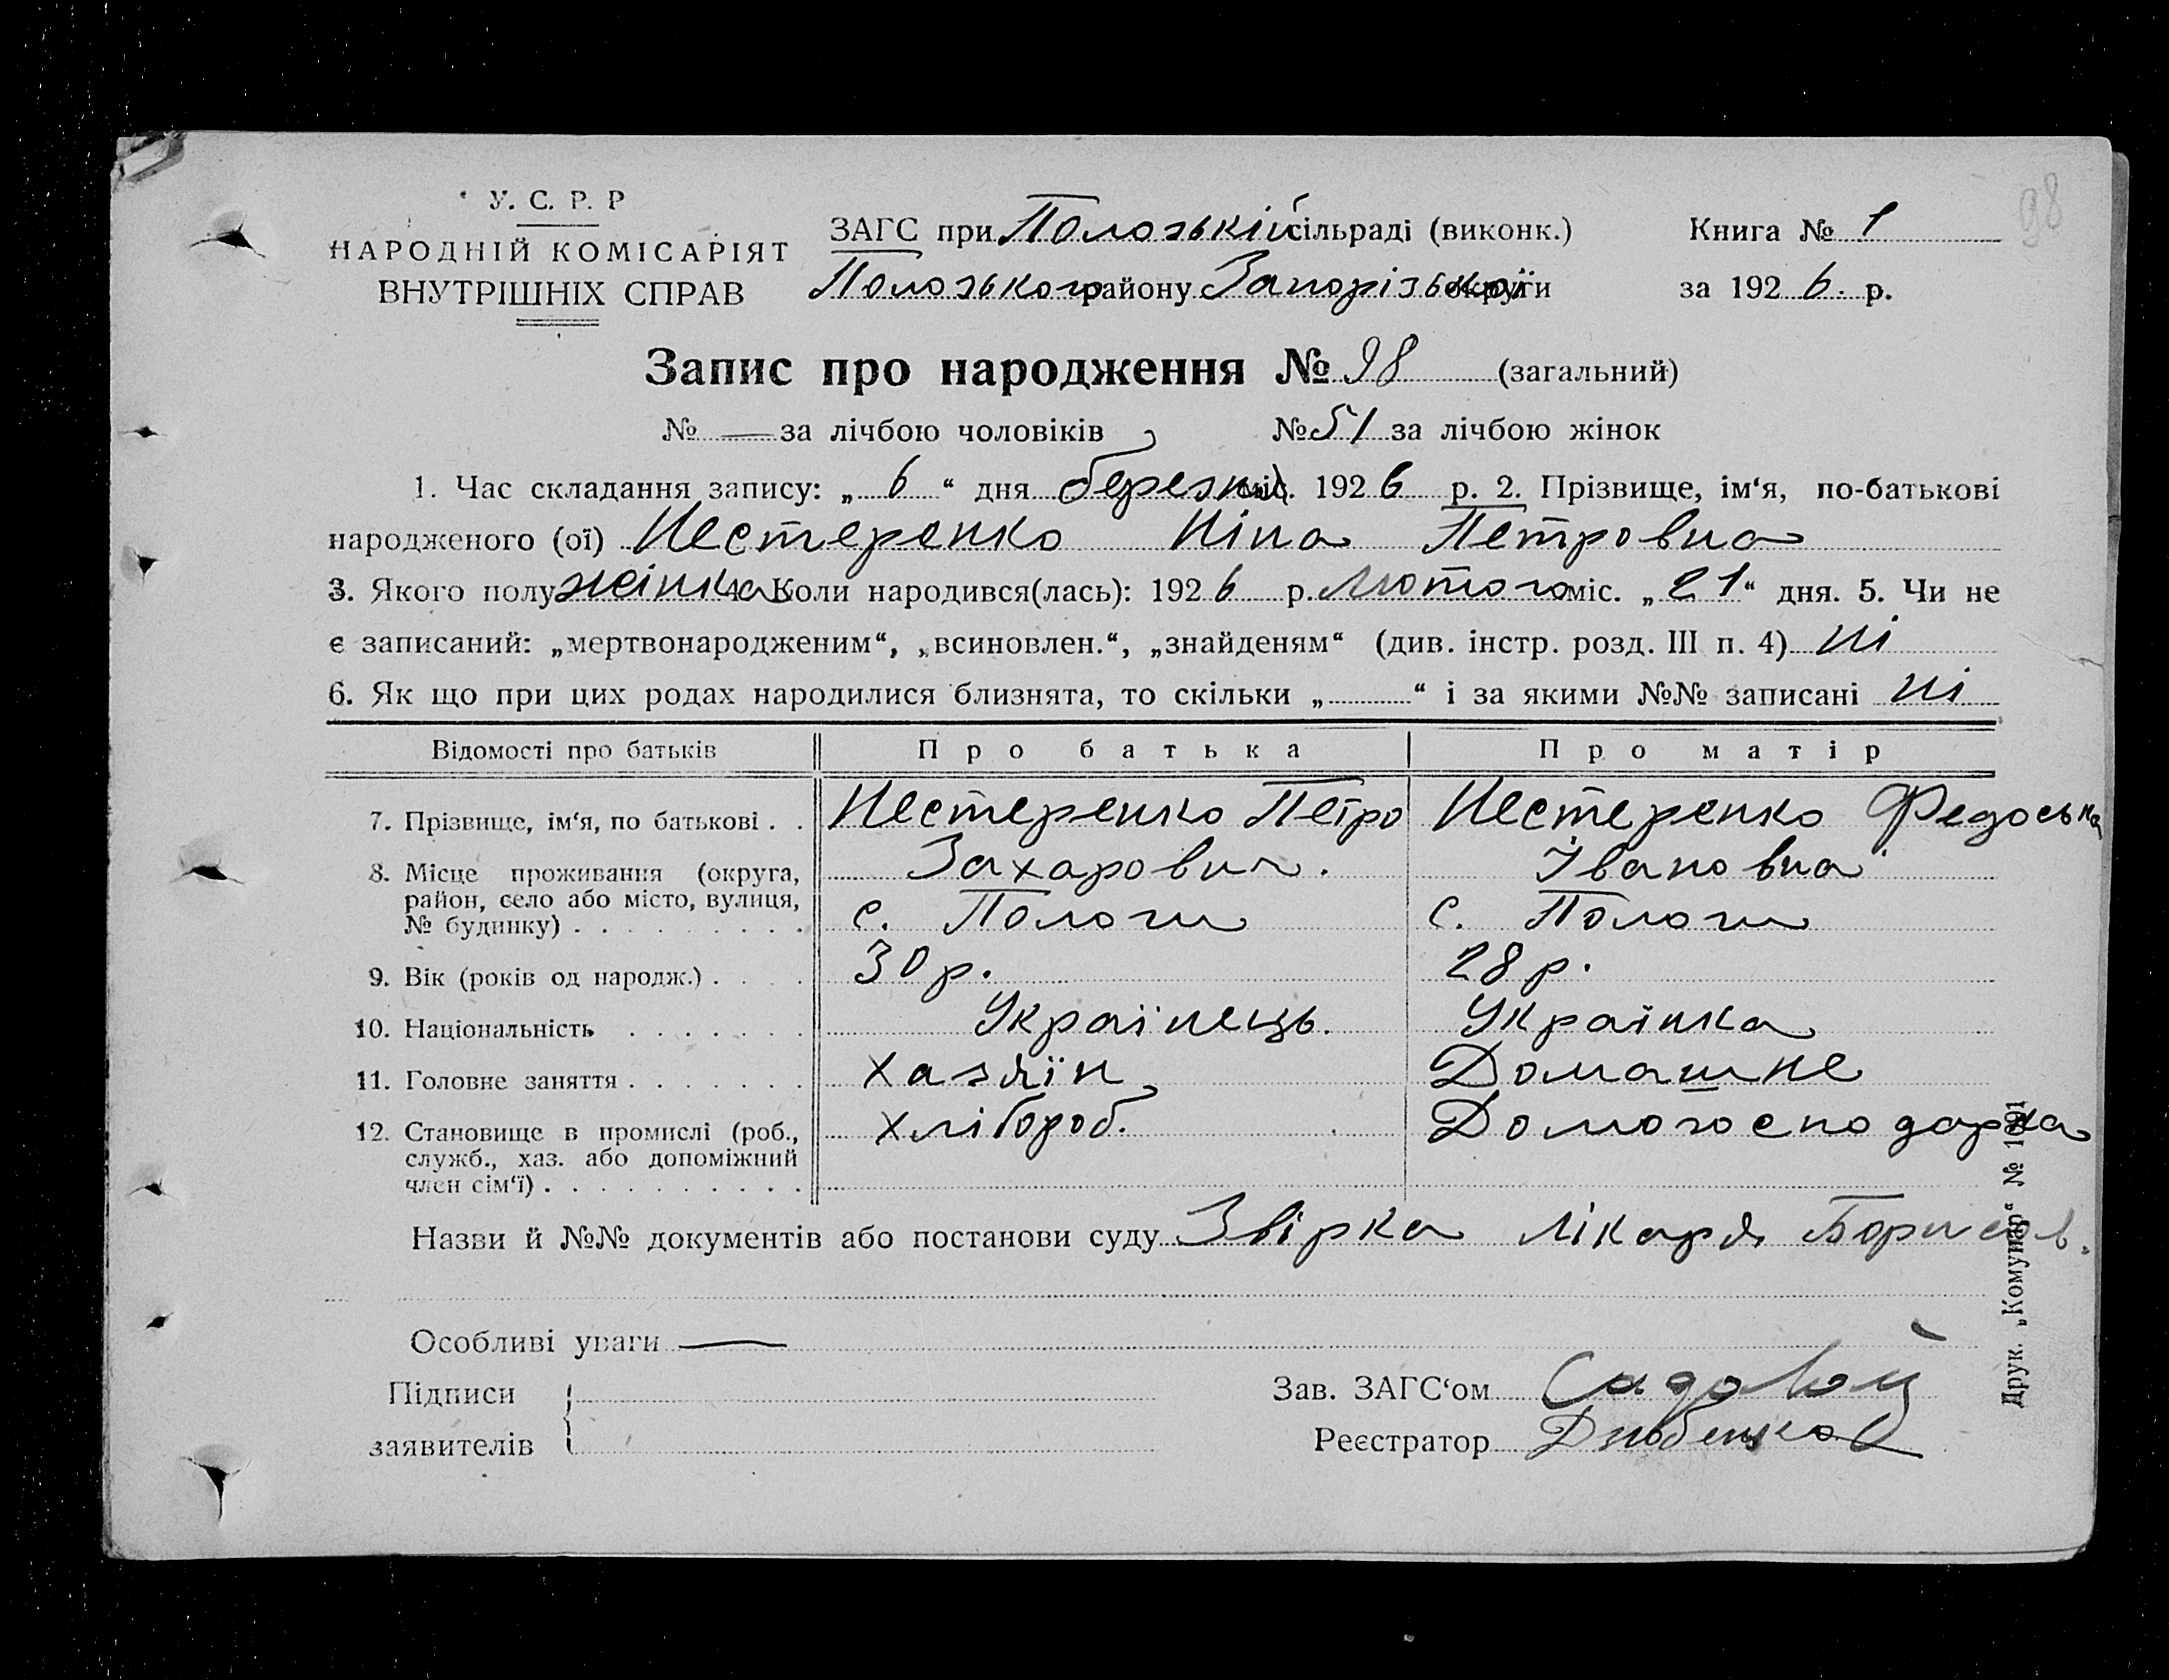 98
У. С. Р. Р
НАРОДНІЙ КОМІСАРІЯТ
ВНУТРІШНІХ СПРАВ
ЗАГС при Полозькій сільраді (виконк.)
Полозького району Запорізької округи
Книга № 1
за 1926 р.
Запис про народження № 98 (загальний)
№ — за лічбою чоловіків № 51 за лічбою жінок
1. Час складання запису: „ 6 “ дня березня міс. 1926 р. 2. Прізвище, ім‘я, по-батькові
народженого (ої) Нестеренко Ніна Петровна
3. Якого полу жінка 4. Коли народився(лась): 1926 р. Лютого міс. „ 21 “ дня. 5. Чи не
є записаний: „мертвонародженим“, „всиновлен.“, „знайденям“ (див. інстр. розд. III п. 4) ні
6. Як що при цих родах народилися близнята, то скільки „ “ і за якими №№ записані ні
Відомості про батьків Про батька Про матір
7. Прізвище, ім‘я, по батькові . . Нестеренко Петро Нестеренко Федоська
Захарович. Івановна
8. Місце проживання (округа,
район, село або місто, вулиця,
№ будинку) с. Пологи с. Пологи
9. Вік (років од народж.) 30 р. 28 р.
10. Національність Українець. Українка
11. Головне заняття хазяїн Домашнє
12. Становище в промислі (роб.,
служб., хаз. або допоміжний
член сім‘ї) хлібороб. Домогосподарка
Назви й №№ документів або постанови суду Звірка лікаря Борисов.
Особливі уваги —
Підписи
заявителів
Зав. ЗАГС‘ом Садовый
Реєстратор
Друк. „Комунар“ № 1191